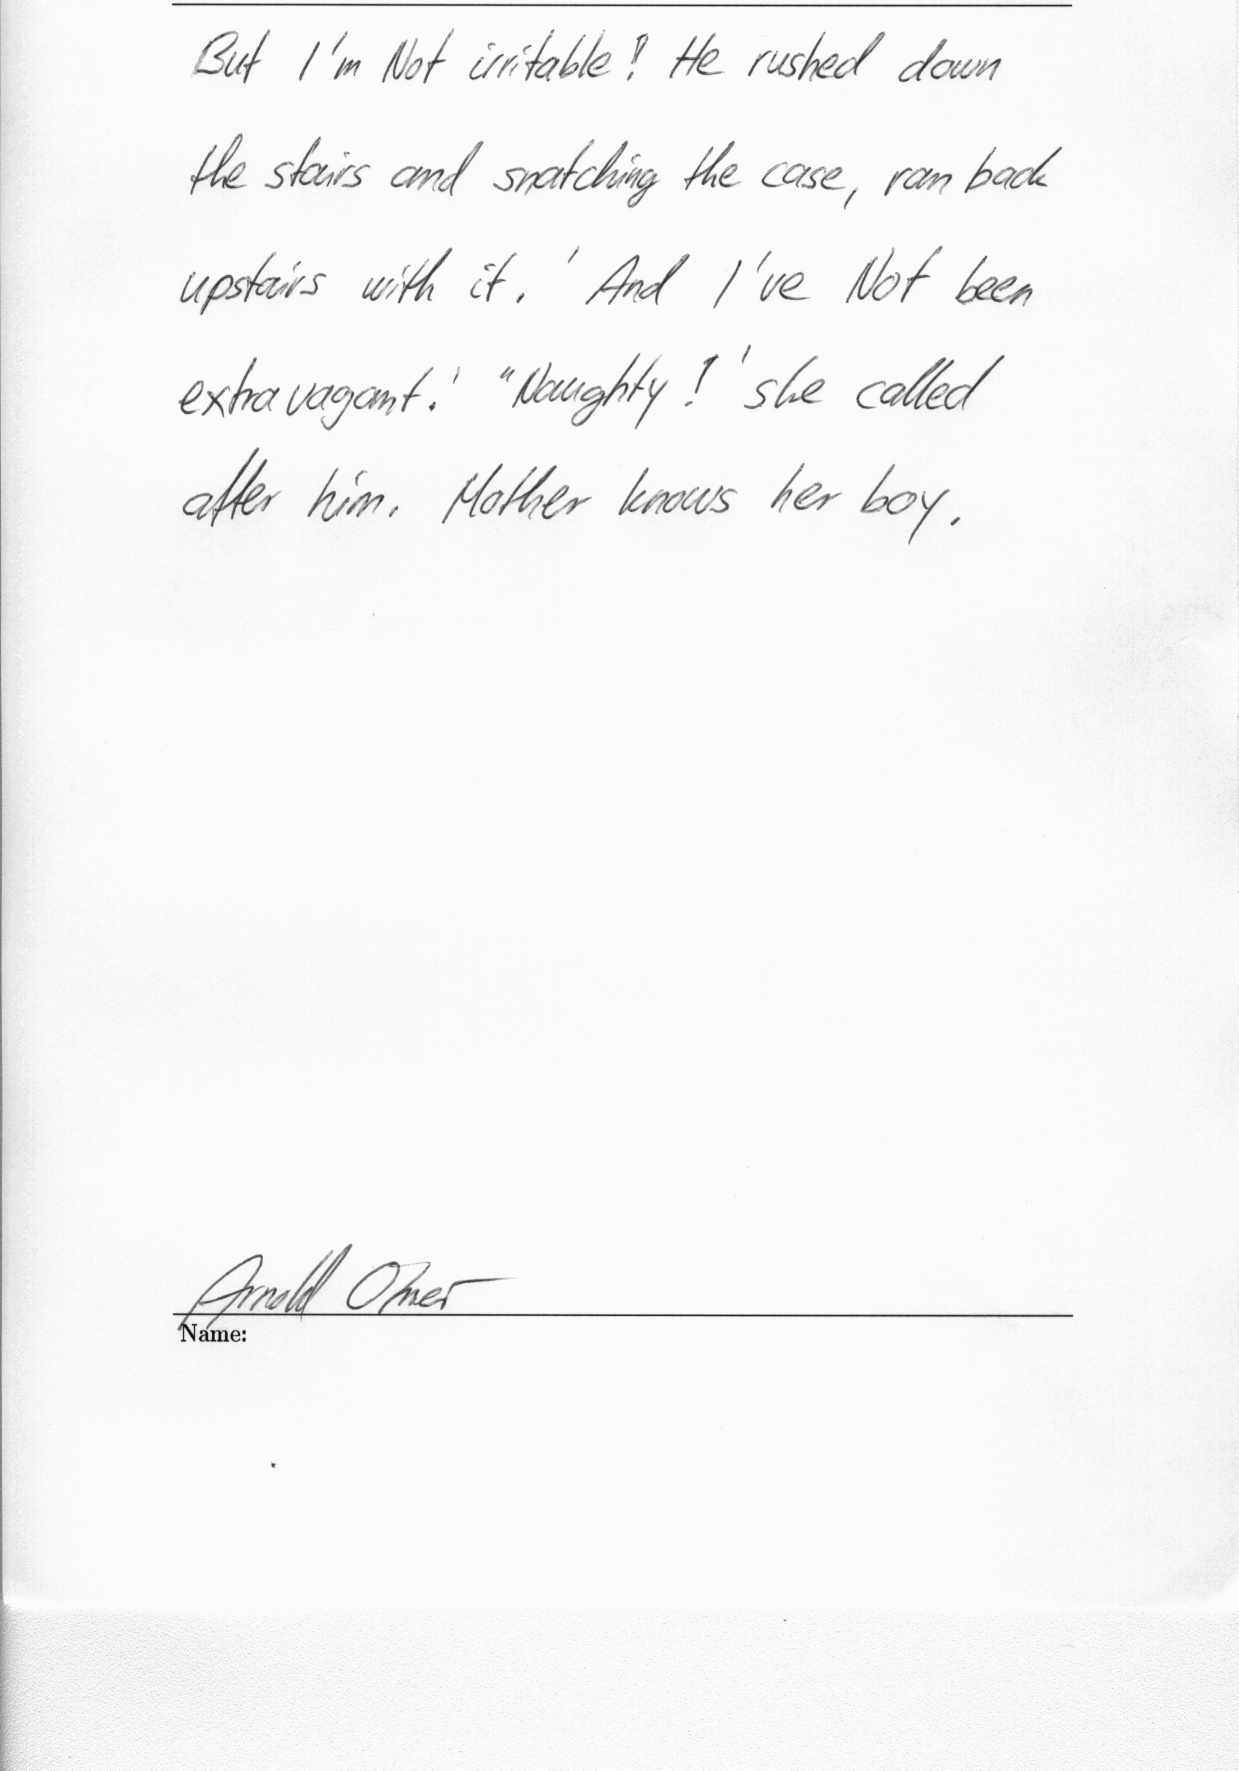 But I'm Not irritable! He rushed down
the stairs and snatching the case, ran back
upstairs with it. 'And I've Not been
extravagant.' "Naughty!' she called
after him. Mother knows her boy.
Arnold
Name: